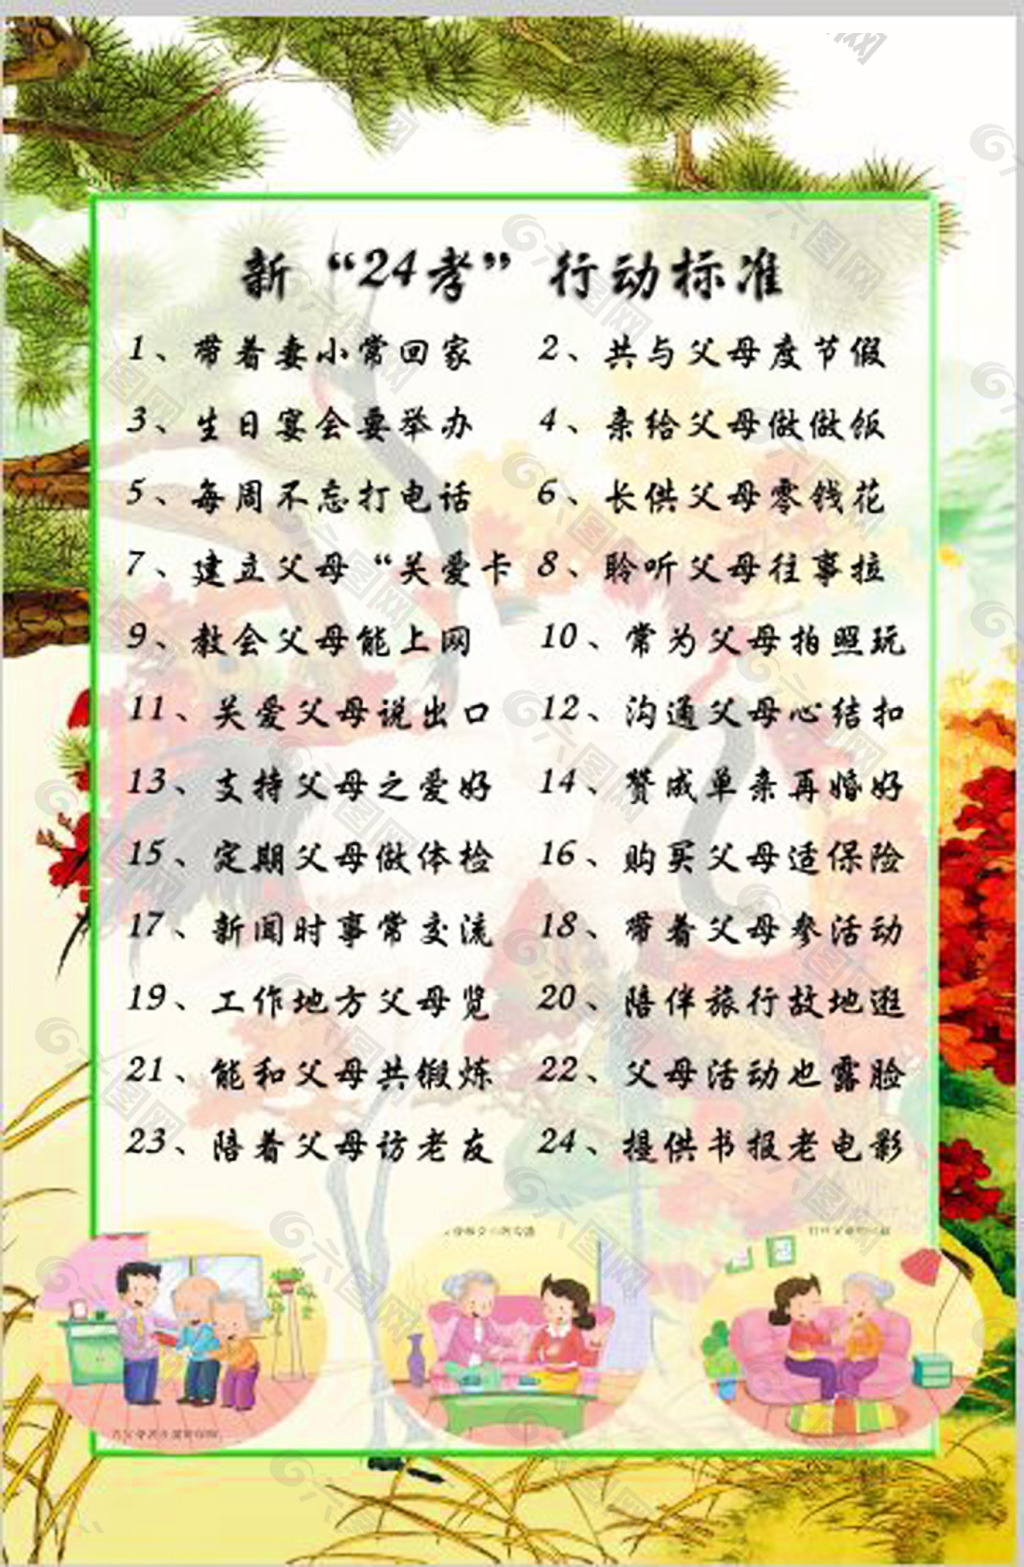 新“24孝”行动标准
1、带着妻小常回家 2、共与父母度节假
3、生日宴会要举办 4、亲给父母做做饭
5、每周不忘打电话 6、长供父母零钱花
7、建立父母“关爱卡 8、聆听父母往事拉
9、教会父母能上网 10、常为父母拍照玩
11、关爱父母说出口 12、沟通父母心结扣
13、支持父母之爱好 14、赞成单亲再婚好
15、定期父母做体检 16、购买父母适保险
17、新闻时事常交流 18、带着父母参活动
19、工作地方父母览 20、陪伴旅行故地逛
21、能和父母共锻炼 22、父母活动也露脸
23、陪着父母访老友 24、提供书报老电影